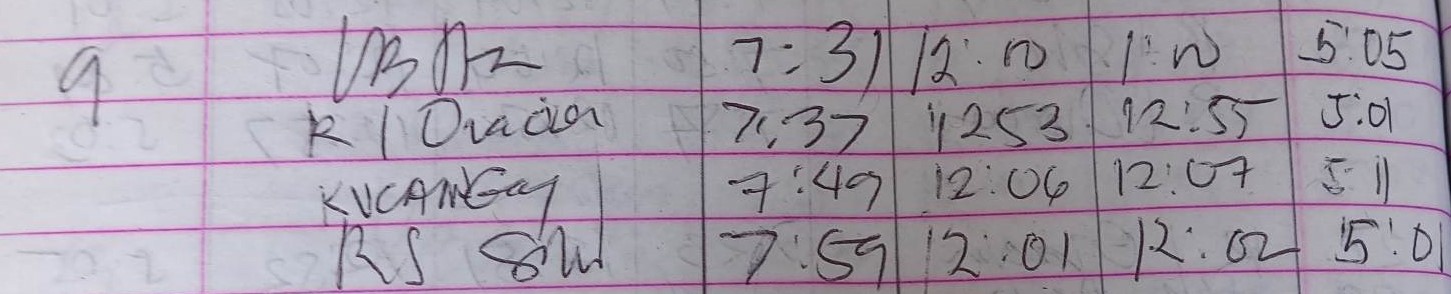 9 7:31 12:00 1:00 5:05
R 1 Oracion 7:37 1253 12:55 5:01
KVCAMGay 7:49 12:06 12:07 5:11
RS 7:59 12:01 12:02 5:01